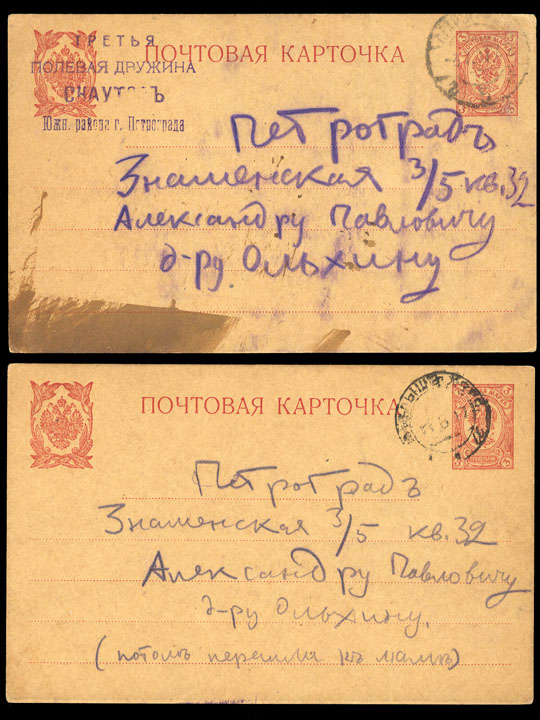 ТРЕТЬЯ
ПОЛЕВАЯ ДРУЖИНА
СКАУТОВЪ
Южн. района г. Петрограда
ПОЧТОВАЯ КАРТОЧКА
Петроградъ
Знаменская 3/5 кв.32
Александру Павловичу
д-ру Ольхину
ПОЧТОВАЯ КАРТОЧКА
Петроградъ
Знаменская 3/5 кв.32
Александру Павловичу
д-ру Ольхину.
(потомъ перешли къ мамѣ)